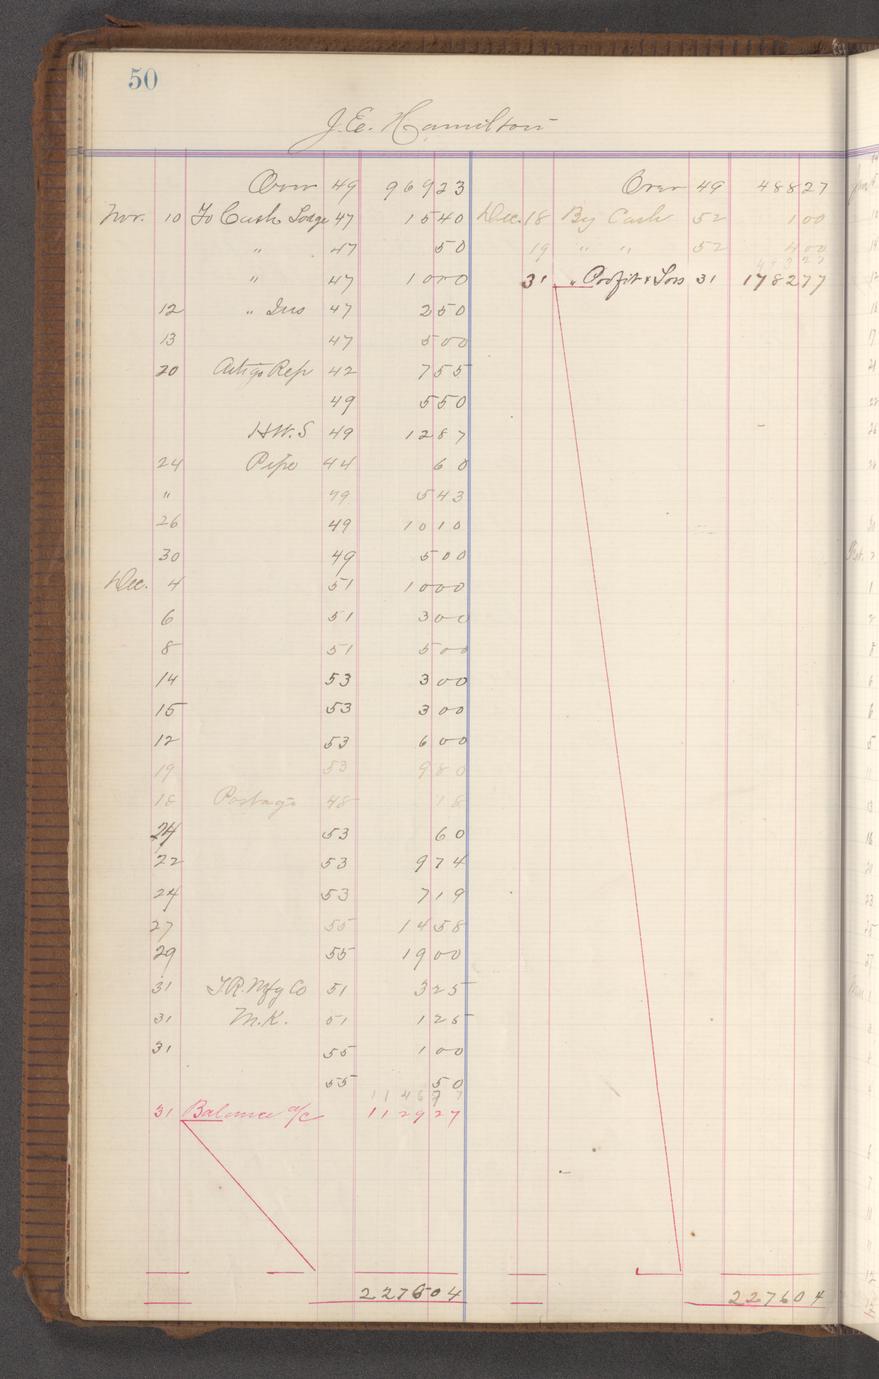 50
J.E. Hamilton
Over 49 969 23 Over 49 488 27
Nov. 10 To Cash Lodge 47 15 40 Dec. 18 By Cash 52 1 00
" 47 50 19 " " 52 4 00
493 27
" 47 10 00 31 " Profit & Loss 31 1782 77
12 " Ins 47 2 50
13 47 5 00
20 Rep 42 7 55
49 5 50
H.W.S 49 12 87
24 Pipe 44 60
" 49 5 43
26 49 10 10
30 49 5 00
Dec. 4 51 10 00
6 51 3 00
8 51 5 00
14 53 3 00
15 53 3 00
12 53 6 00
19 53 9 80
18 Postage 48 18
24 53 60
22 53 9 74
24 53 7 19
27 55 14 58
29 55 19 00
31 T.R. Mfg Co 51 3 25
31 M.K. 51 1 25
31 55 1 00
55 50
1146 77
31 Balance a/c 1129 27
2276 04 2276 04